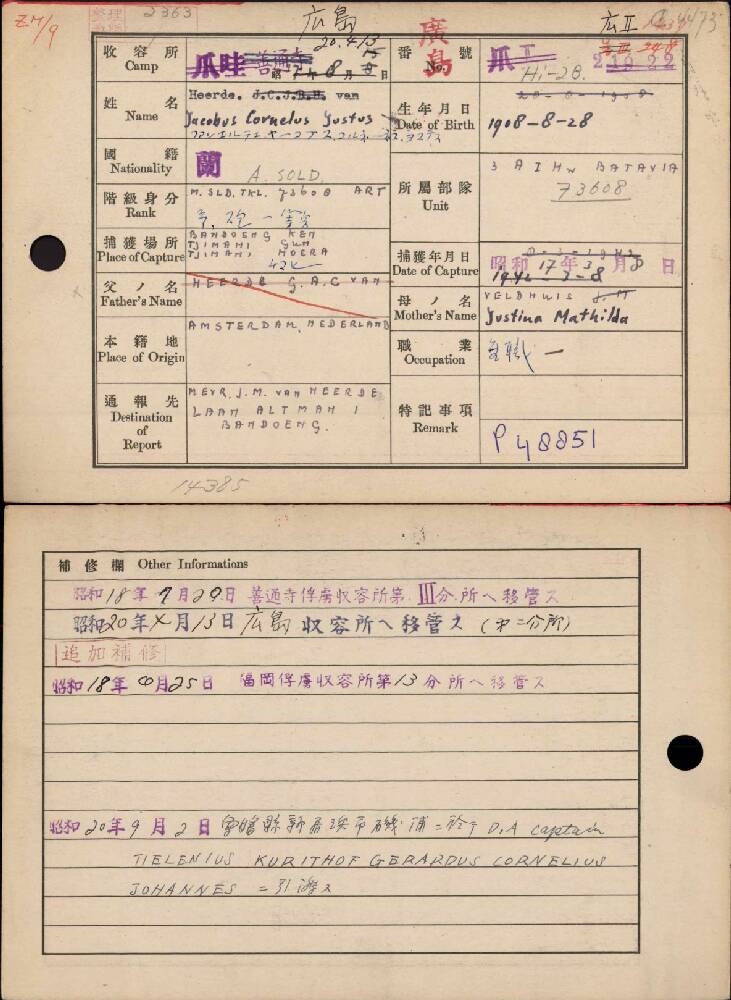 2363
広島
20.4/13
広II
廣島
ZM/9
收容所 Camp
爪哇 善通寺
8月8日
番號 No.
爪II
Hi-28.
姓名 Name
Heerde. J.C.J.B.H. van
Jacobus Cornelus Justus
生年月日 Date of Birth
28-8-1908
1908-8-28
國籍 Nationality
蘭
A. SOLD.
階級身分 Rank
M. SLD. TKL. 73608 ART
所屬部隊 Unit
3 A I Hw BATAVIA
73608
捕獲場所 Place of Capture
BANDOENG KEN
TJIMAHI GUN
TJIMAHI MOERA
捕獲年月日 Date of Capture
8-3-1942
昭和17年3月8日
1942-3-8
父ノ名 Father's Name
HEERDE G.A.C VAN
母ノ名 Mother's Name
VELDHUIS J.M
Justina Mathilda
本籍地 Place of Origin
AMSTERDAM, NEDERLAND
職業 Occupation
無職一
通報先 Destination of Report
MEVR. J.M. VAN HEERDE
LAAN ALTMAN 1
BANDOENG.
特記事項 Remark
P48851
14385
補修欄 Other Informations
昭和18年7月29日 善通寺俘虜収容所第III分所ヘ移管ス
昭和20年4月13日 広島収容所ヘ移管ス (第二分所)
追加補修
昭和18年 月25日 福岡俘虜収容所第13分所ヘ移管ス
昭和20年9月2日 愛媛縣新居浜市磯浦ニ於テ D.A captain
TIELENIUS KURITHOF GERARDUS CORNELIUS
JOHANNES ニ引渡ス